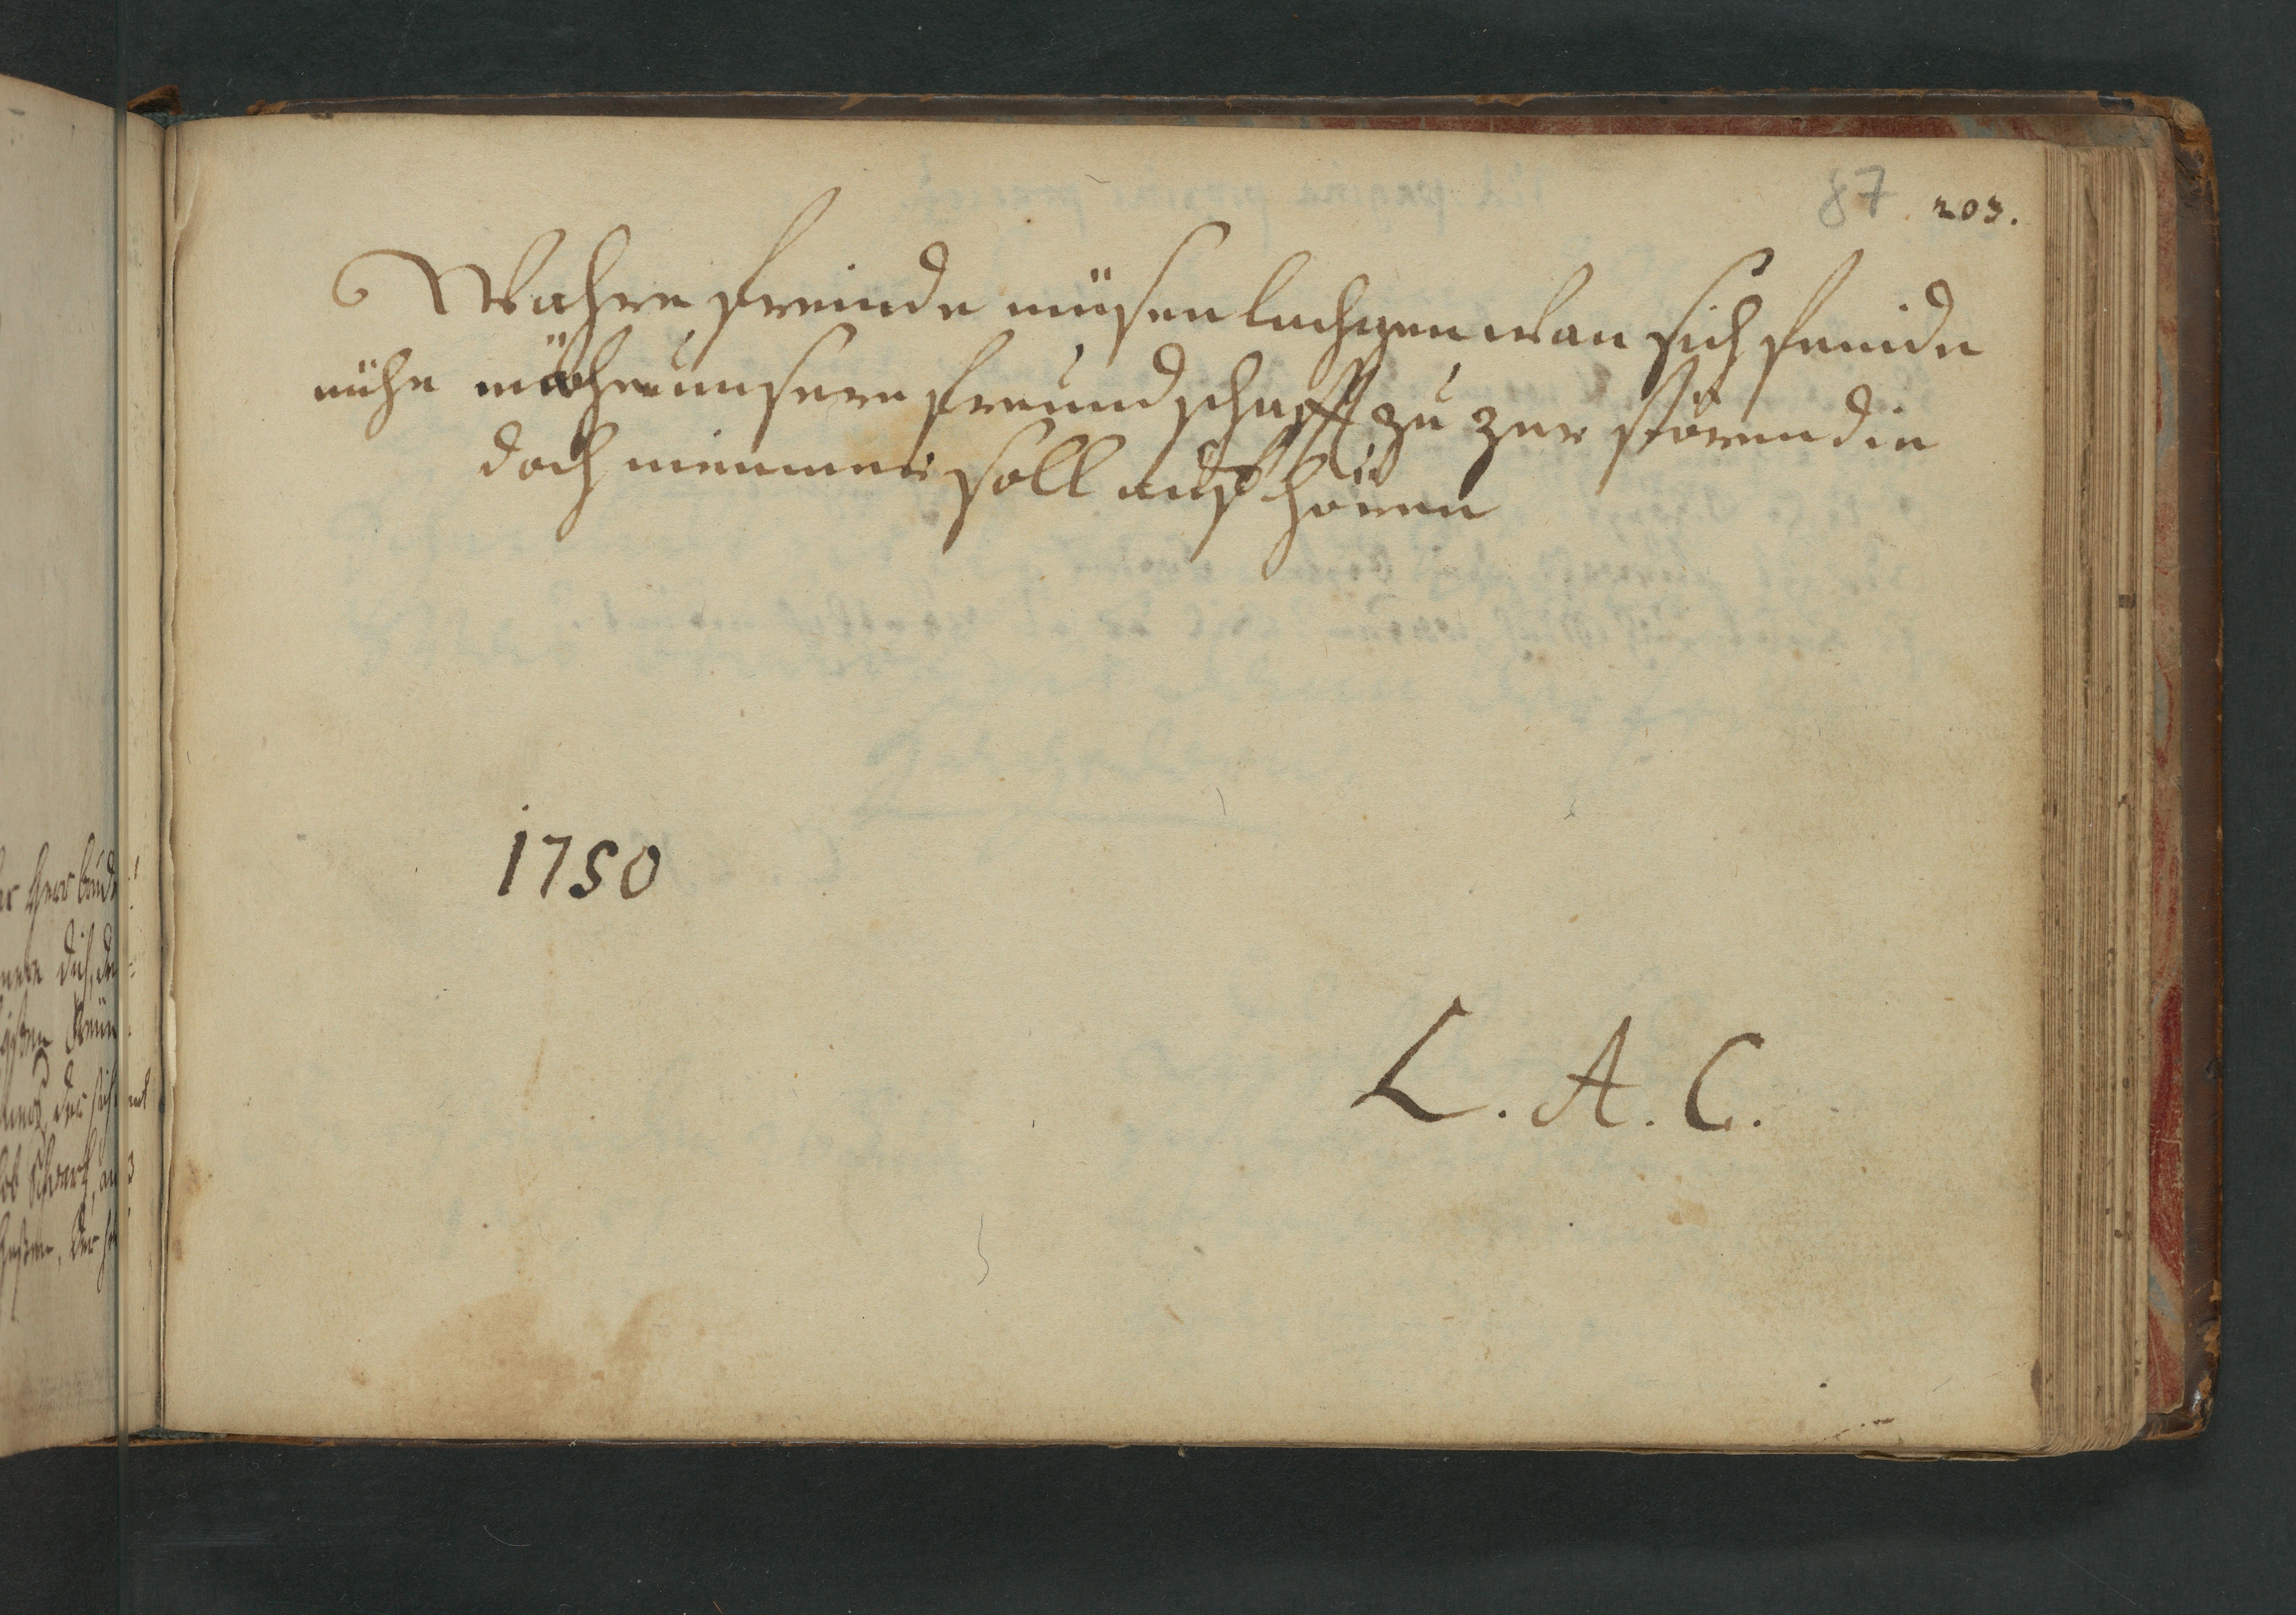 87 203.
Wahre freinde müsen lachgen wan sich feinde
mühe machen unsere freundschafft zu zer stören die
doch niemmer soll auf hören
1750
L. A. C.